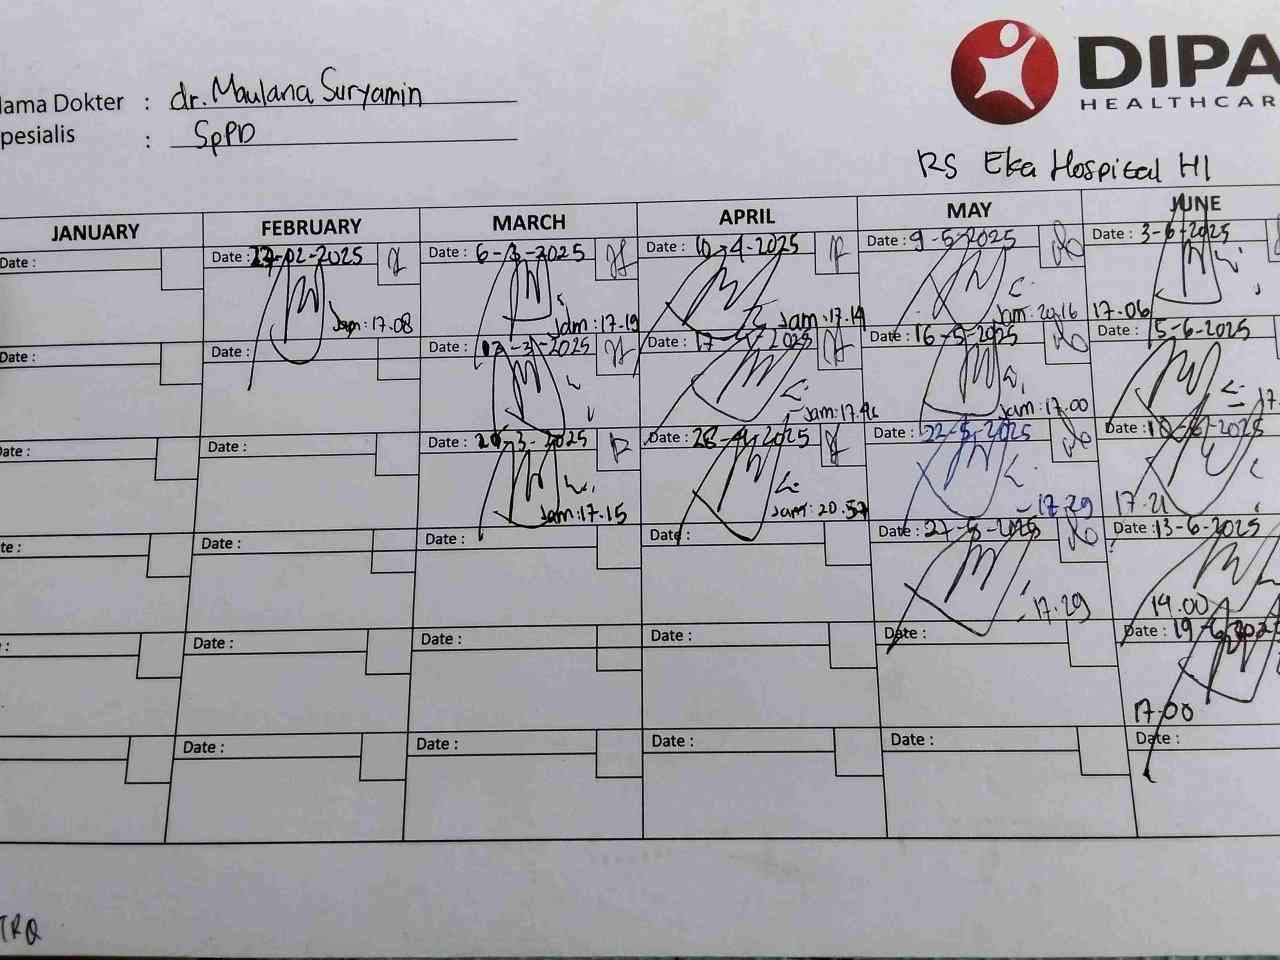 lama Dokter : dr. Maulana Suryamin
pesialis : SpPD
DIPA
HEALTHCAR
RS Eka Hospital HI
JANUARY FEBRUARY MARCH APRIL MAY JUNE
Date : Date : -02-2025 Date : 6-3-2025 Date : 10-4-2025 Date : 9-5-2025 Date : 3-6-2025
Jam: 17.08 Jam: 17.19 Jam: 17.19 Jam: 20.16 17.06
Date : Date : Date : -3-2025 Date : 17- -2025 Date : 16-5-2025 Date : 5-6-2025
Jam: 17. Jam: 17.00 17.
Date : Date : Date : -3-2025 Date : 28-4-2025 Date : 22-5-2025 Date : -2025
Jam: 17.15 Jam: 20.57 17.29 17.21
te : Date : Date : Date : Date : 27-5-2025 Date : 13-6-2025
17.29 14.00
: Date : Date : Date : Date : Date : 19-6-202
17.00
Date : Date : Date : Date : Date :
TRQ